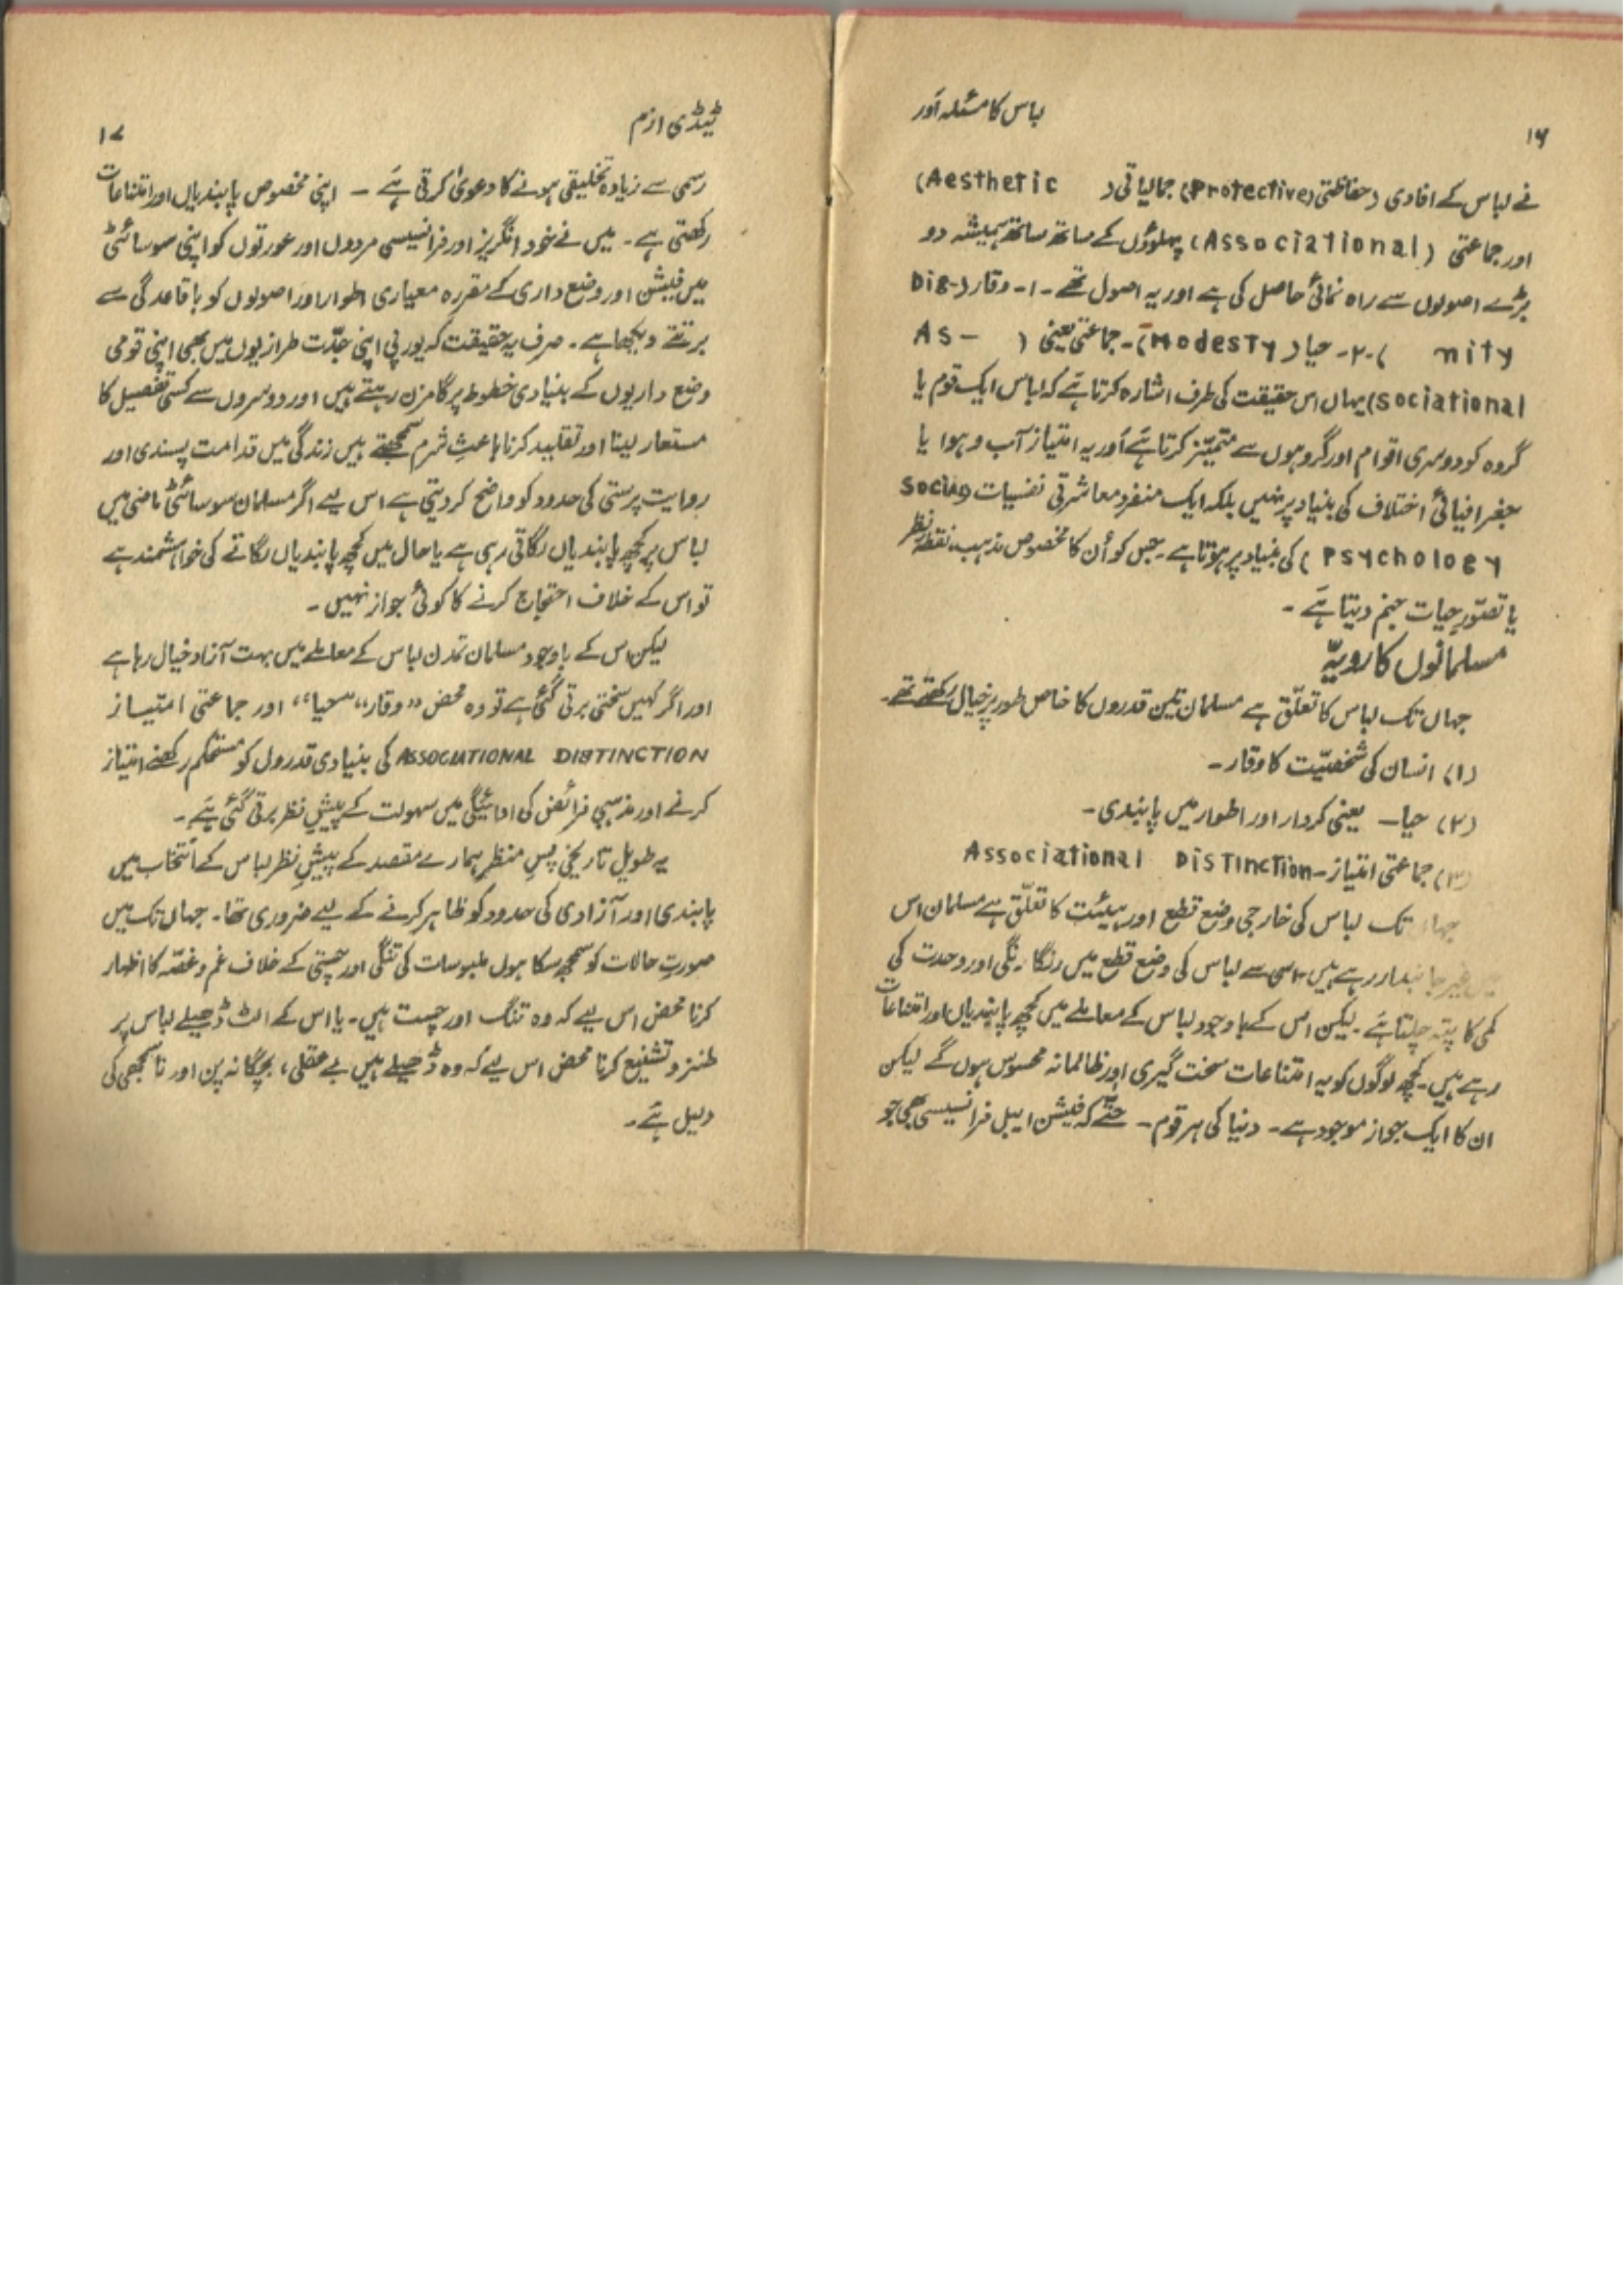 لباس کا مسئلہ اَور
۱۶
نے لباس کے افادی (حفاظتی (Protective) جمالیاتی (Aesthetic)
اور جماعتی (Associational) پہلوؤں کے ساتھ ساتھ ہمیشہ دو
بڑے اصولوں سے راہ نمائی حاصل کی ہے اور یہ اصول تھے۔ ۱۔ وقار (Dig-
nity) ۔۲۔ حیا (Modesty)۔ جماعتی یعنی (As-
sociational) یہاں اس حقیقت کی طرف اشارہ کرتا ہَے کہ لباس ایک قوم یا
گروہ کو دوسری اقوام اور گروہوں سے متمیّز کرتا ہَے اَور یہ امتیاز آب و ہوا یا
جغرافیائی اختلاف کی بنیاد پر نہیں بلکہ ایک منفرد معاشرتی نفسیات
Psychology) کی بنیاد پر ہوتا ہے۔ جس کو اُن کا مخصوص مذہب، نقطۂ نظر
یا تصّورِ حیات جنم دیتا ہَے ۔
مسلمانوں کا رویّہ
جہاں تک لباس کا تعلّق ہے مسلمان تین قدروں کا خاص طور پر خیال رکھتے تھے۔
(۱) انسان کی شخصیّت کا وقار۔
(۲) حیا۔ یعنی کردار اور اطوار میں پابندی۔
(۳) جماعتی امتیاز۔ Associational Distinction
جہاں تک لباس کی خارجی وضع قطع اور ہیئت کا تعلّق ہے مسلمان اس
میں غیر جانبدار رہے ہیں اسی سے لباس کی وضع قطع میں رنگا رنگی اور وحدت کی
کمی کا پتہ چلتا ہَے۔ لیکن اس کے باوجود لباس کے معاملے میں کچھ پابندیاں اور امتناعات
رہے ہیں۔ کچھ لوگوں کو یہ امتناعات سخت گیری اور ظالمانہ محسوس ہوں گے لیکن
ان کا ایک جواز موجود ہے۔ دنیا کی ہر قوم۔ حتّٰے کہ فیشن ایبل فرانسیسی بھی جو
ٹیڈی ازم
۱۷
رسمی سے زیادہ تخلیقی ہونے کا دعویٰ کرتی ہَے ۔ اپنی مخصوص پابندیاں اور امتناعات
رکھتی ہے۔ میں نے خود انگریز اور فرانسیسی مردوں اور عورتوں کو اپنی سوسائٹی
میں فیشن اور وضع داری کے مقررہ معیاری اطوار اور اصولوں کو باقاعدگی سے
برتتے دیکھا ہے۔ صرف یہ حقیقت کہ یورپی اپنی جدّت طرازیوں میں بھی اپنی قومی
وضع داریوں کے بنیادی خطوط پر گامزن رہتے ہیں اور دوسروں سے کسی تفصیل کا
مستعار لینا اور تقلید کرنا باعثِ شرم سمجھتے ہیں زندگی میں قدامت پسندی اور
روایت پرستی کی حدود کو واضح کر دیتی ہے اس لیے اگر مسلمان سوسائٹی ماضی میں
لباس پر کچھ پابندیاں لگاتی رہی ہے یا حال میں کچھ پابندیاں لگانے کی خواہشمند ہے
تو اس کے خلاف احتجاج کرنے کا کوئی جواز نہیں۔
لیکن اس کے باوجود مسلمان تمدن لباس کے معاملے میں بہت آزاد خیال رہا ہے
اور اگر کہیں سختی برتی گئی ہے تو وہ محض ”وقار“، ”حیا“، اور جماعتی امتیاز
ASSOCIATIONAL DISTINCTION کی بنیادی قدروں کو مستحکم رکھنے امتیاز
کرنے اور مذہبی فرائض کی ادائیگی میں سہولت کے پیشِ نظر برتی گئی ہَے ۔
یہ طویل تاریخی پسِ منظر ہمارے مقصد کے پیشِ نظر لباس کے انتخاب میں
پابندی اور آزادی کی حدود کو ظاہر کرنے کے لیے ضروری تھا۔ جہاں تک میں
صورتِ حالات کو سمجھ سکا ہوں ملبوسات کی تنگی اور چستی کے خلاف غم و غصّہ کا اظہار
کرنا محض اس لیے کہ وہ تنگ اور چست ہیں۔ یا اس کے الٹ ڈھیلے لباس پر
طنز و تشنیع کرنا محض اس لیے کہ وہ ڈھیلے ہیں بے عقلی، بچگانہ پن اور ناسمجھی کی
دلیل ہَے۔